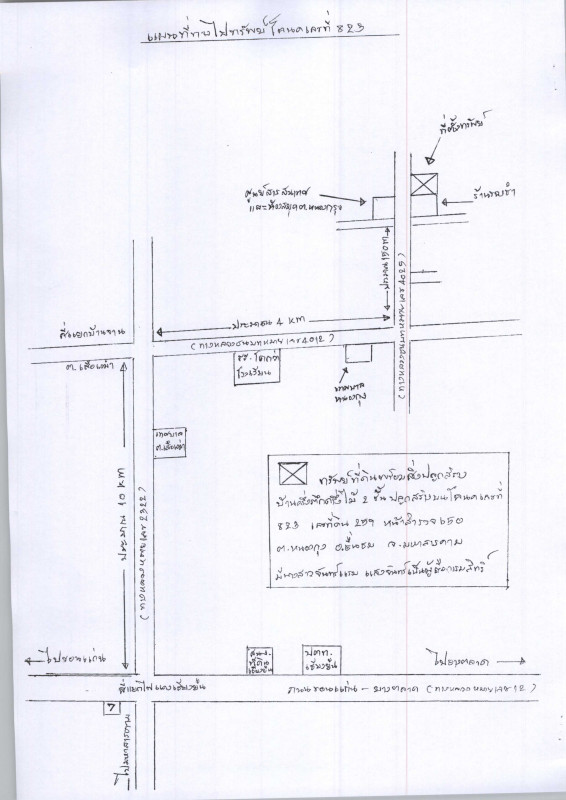 แผนที่ทางไปทรัพย์ โฉนดเลขที่ 823
ที่ตั้งทรัพย์
ศูนย์สารสนเทศ
และห้องสมุด ต.หนองกุง
ร้านของชำ
ประมาณ 150 m
ประมาณ 4 km
(ทางหลวงชนบทหมายเลข 4012)
สี่แยกบ้านขาม
ต.เสือเฒ่า
โรงเรียน
เทศบาล
หนองกุง
เทศบาล
ต.เสือเฒ่า
ประมาณ 10 km
ทรัพย์ที่ดินพร้อมสิ่งปลูกสร้าง
บ้านครึ่งตึกครึ่งไม้ 2 ชั้น ปลูกสร้างบนโฉนดเลขที่
823 เลขที่ดิน 259 หน้าสำรวจ 650
ต.หนองกุง อ.ชื่นชม จ.มหาสารคาม
มีนางสาวจันทร์แรม แสงจันทร์เป็นผู้ถือกรรมสิทธิ์
ไปขอนแก่น
สนง.
ที่ดิน
เชียงยืน
ปตท.
เชียงยืน
ไปยางตลาด
สี่แยกไฟแดงเชียงยืน
ถนนขอนแก่น - ยางตลาด (ทางหลวงหมายเลข 12)
7
ไปมหาสารคาม